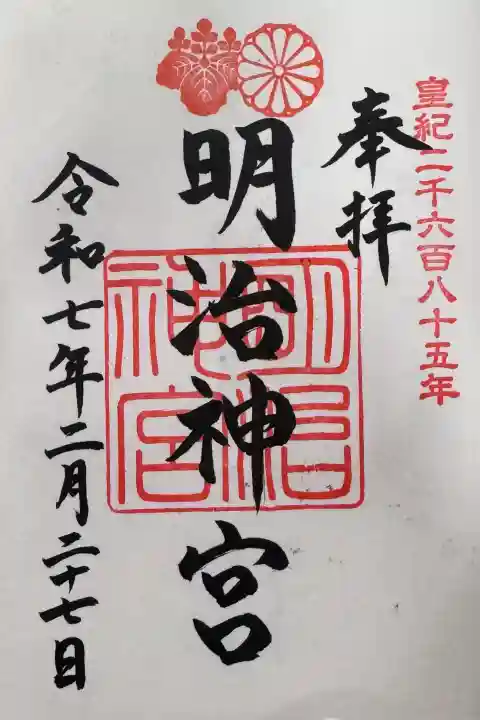 皇紀二千六百八十五年
奉拝
明治神宮
明治神宮
令和七年二月二十七日